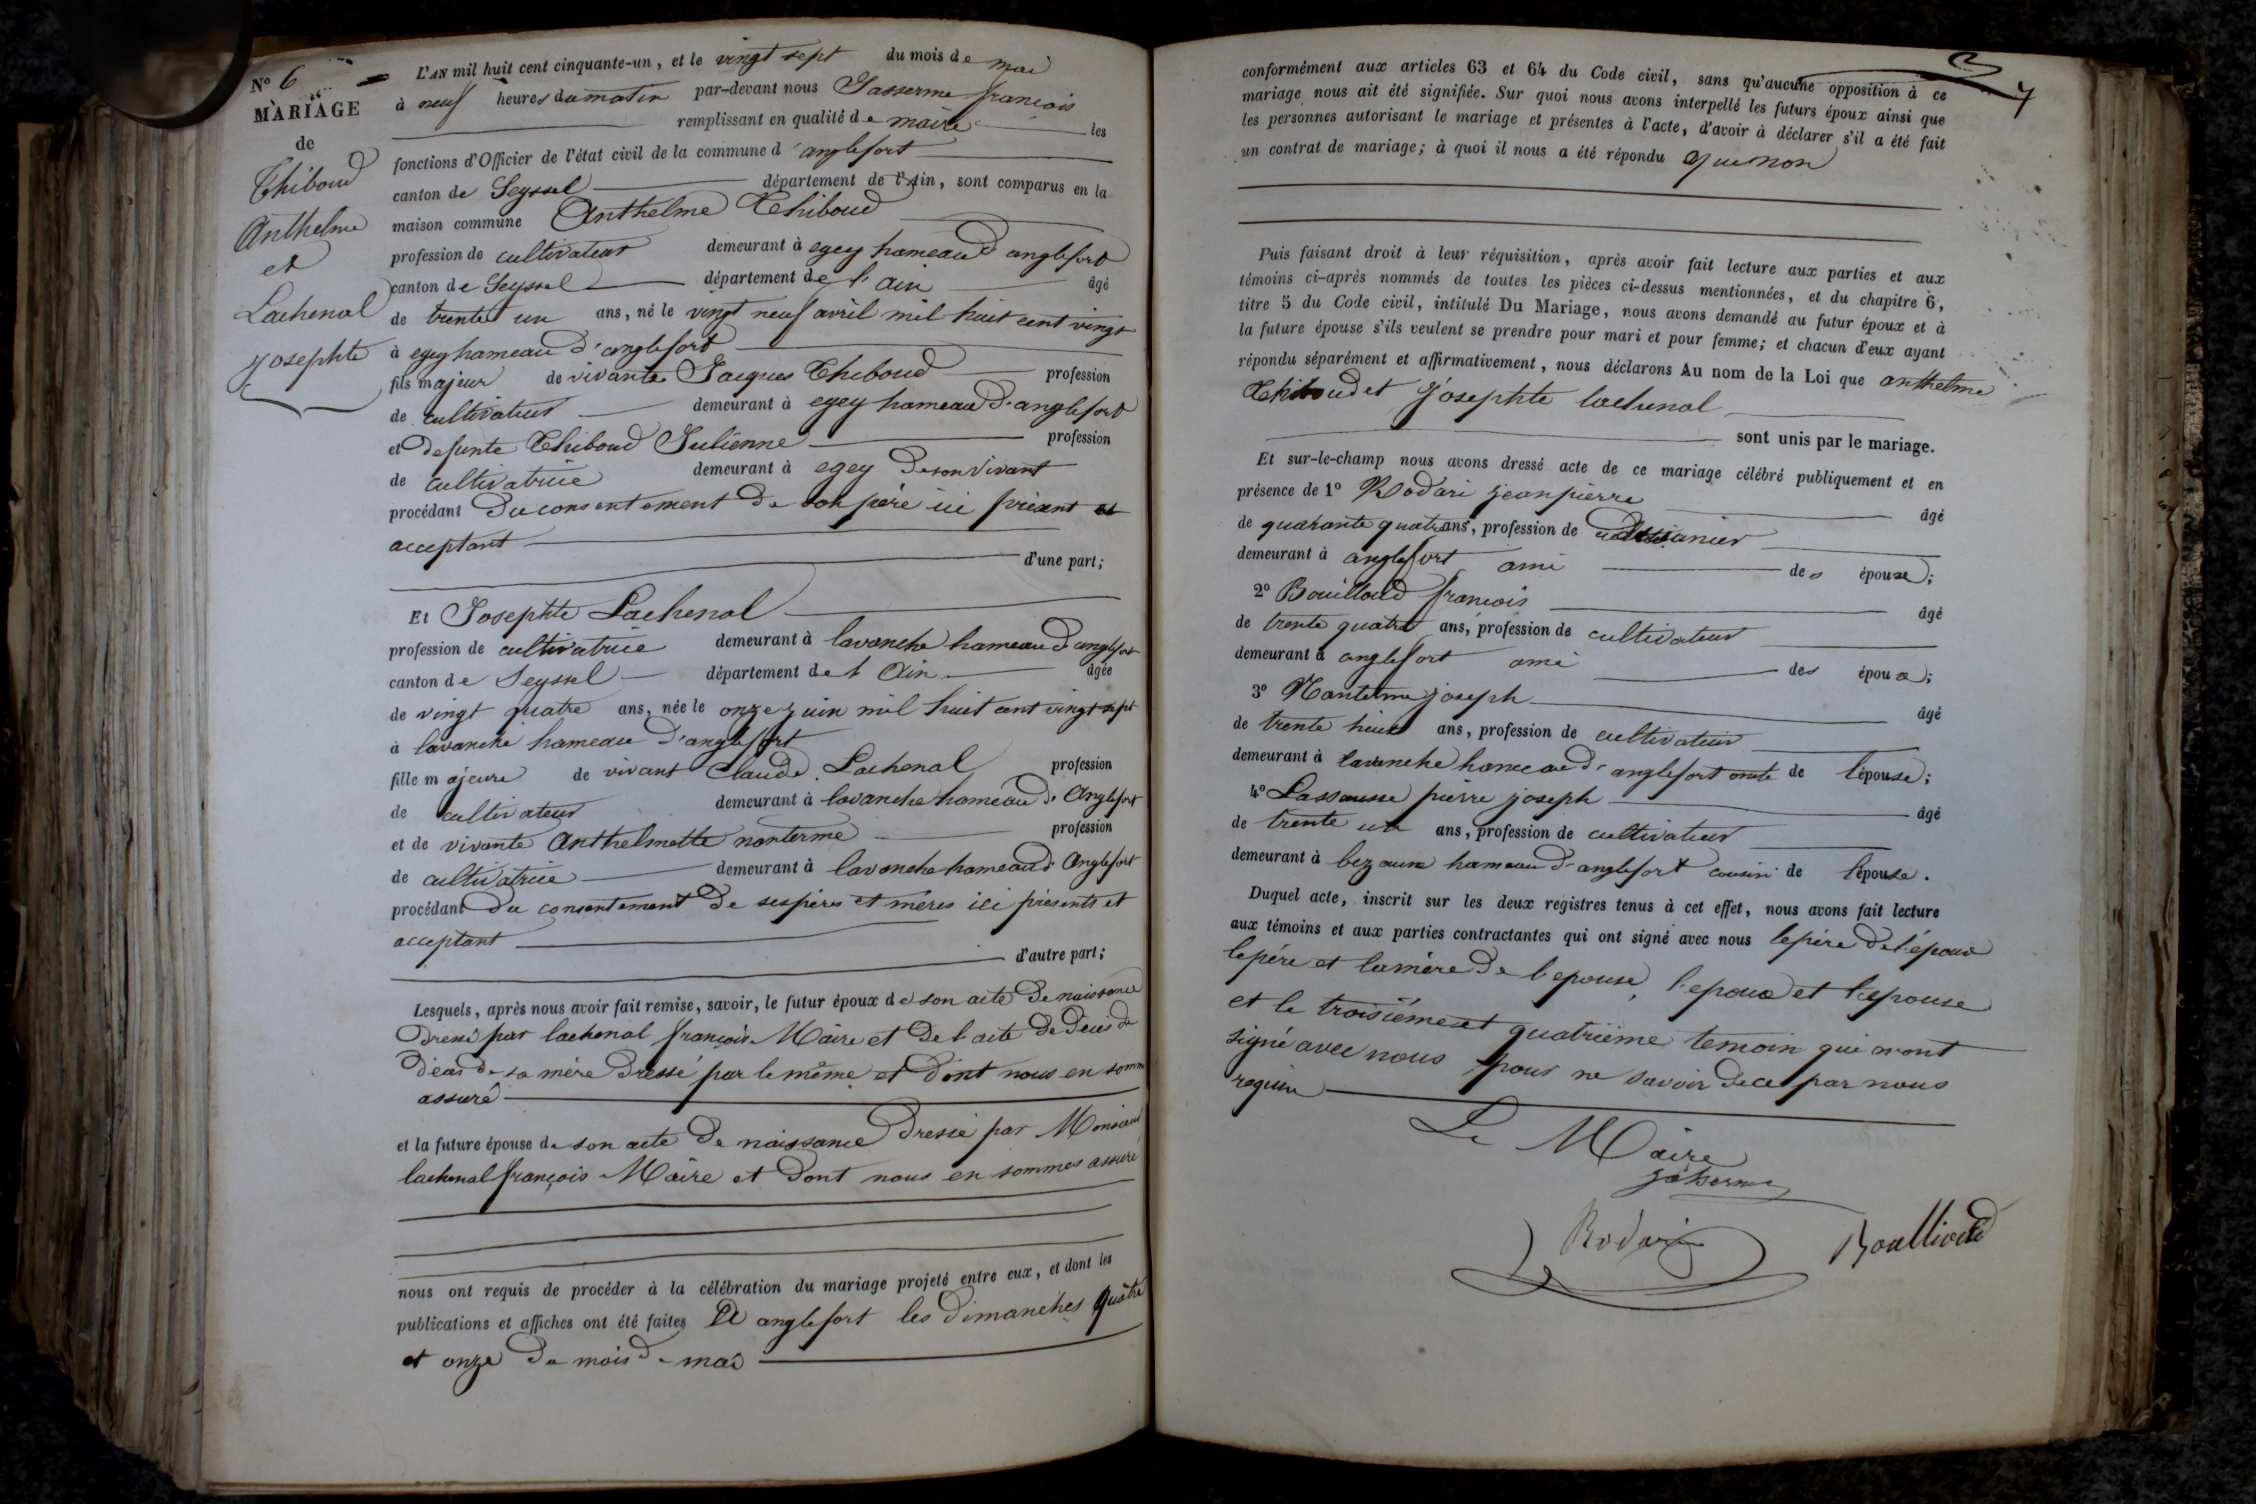 N° 6
MARIAGE
de
Thiboud
Anthelme
et
Lachenal
josephte
L'AN mil huit cent cinquante-un, et le vingt sept du mois de mai
à neuf heures du matin par-devant nous Jasserme françois
remplissant en qualité de maire les
fonctions d'Officier de l'état civil de la commune d'anglefort
canton de Seyssel département de l'Ain, sont comparus en la
maison commune Anthelme Thiboud
profession de cultivateur demeurant à egey hameau d'anglefort
canton de Seyssel département de l'ain âgé
de trente un ans, né le vingt neuf avril mil huit cent vingt
à egey hameau d'anglefort
fils majeur de vivante Jacques Thiboud profession
de cultivateur demeurant à egey hameau d'anglefort
et defunte Thiboud Julienne profession
de cultivatrice demeurant à egey de son vivant
procédant du consentement de son père ici présant et
acceptant
d'une part;
Et Josephte Lachenal
profession de cultivatrice demeurant à lavanche hameau d'anglefort
canton de Seyssel département de l'Ain âgée
de vingt quatre ans, née le onze juin mil huit cent vingt sept
à lavanche hameau d'anglefort
fille majeure de vivant Claude Lachenal profession
de cultivateur demeurant à lavanche hameau d'Anglefort
et de vivante Anthelmette nanterme profession
de cultivatrice demeurant à lavanche hameau d'Anglefort
procédant du consentement de ses pères et mères ici présents et
acceptant
d'autre part;
Lesquels, après nous avoir fait remise, savoir, le futur époux de son acte de naissance
dressé par lachenal françois Maire et de l'acte de décès de
décès de sa mère dressé par le même et dont nous en somme
assuré
et la future épouse de son acte de naissance dressé par Monsieur
lachenal françois Maire et dont nous en sommes assuré
nous ont requis de procéder à la célébration du mariage projeté entre eux, et dont les
publications et affiches ont été faites à anglefort les dimanches quatre
et onze du mois de mai
7
conformément aux articles 63 et 64 du Code civil, sans qu'aucune opposition à ce
mariage nous ait été signifiée. Sur quoi nous avons interpellé les futurs époux ainsi que
les personnes autorisant le mariage et présentes à l'acte, d'avoir à déclarer s'il a été fait
un contrat de mariage; à quoi il nous a été répondu que non
Puis faisant droit à leur réquisition, après avoir fait lecture aux parties et aux
témoins ci-après nommés de toutes les pièces ci-dessus mentionnées, et du chapitre 6,
titre 5 du Code civil, intitulé Du Mariage, nous avons demandé au futur époux et à
la future épouse s'ils veulent se prendre pour mari et pour femme; et chacun d'eux ayant
répondu séparément et affirmativement, nous déclarons Au nom de la Loi que anthelme
Thiboud et Josephte lachenal
sont unis par le mariage.
Et sur-le-champ nous avons dressé acte de ce mariage célébré publiquement et en
présence de 1° Rodari jean pierre âgé
de quarante quatre ans, profession de
demeurant à anglefort ami des époux;
2° Bouilloud françois âgé
de trente quatre ans, profession de cultivateur
demeurant à anglefort ami des époux;
3° Nanterme joseph âgé
de trente huit ans, profession de cultivateur
demeurant à lavanche hameau d'anglefort oncle de l'épouse;
4° Lassausse pierre joseph âgé
de trente un ans, profession de cultivateur
demeurant à bezaune hameau d'anglefort cousin de l'épouse.
Duquel acte, inscrit sur les deux registres tenus à cet effet, nous avons fait lecture
aux témoins et aux parties contractantes qui ont signé avec nous le père de l'époux
le père et la mère de l'epouse, l'epoux et l'epouse
et le troisième et quatrième temoin qui n'ont
signé avec nous pour ne savoir de ce par nous
requis
Le Maire
Jasserme
Rodari
Boullioud